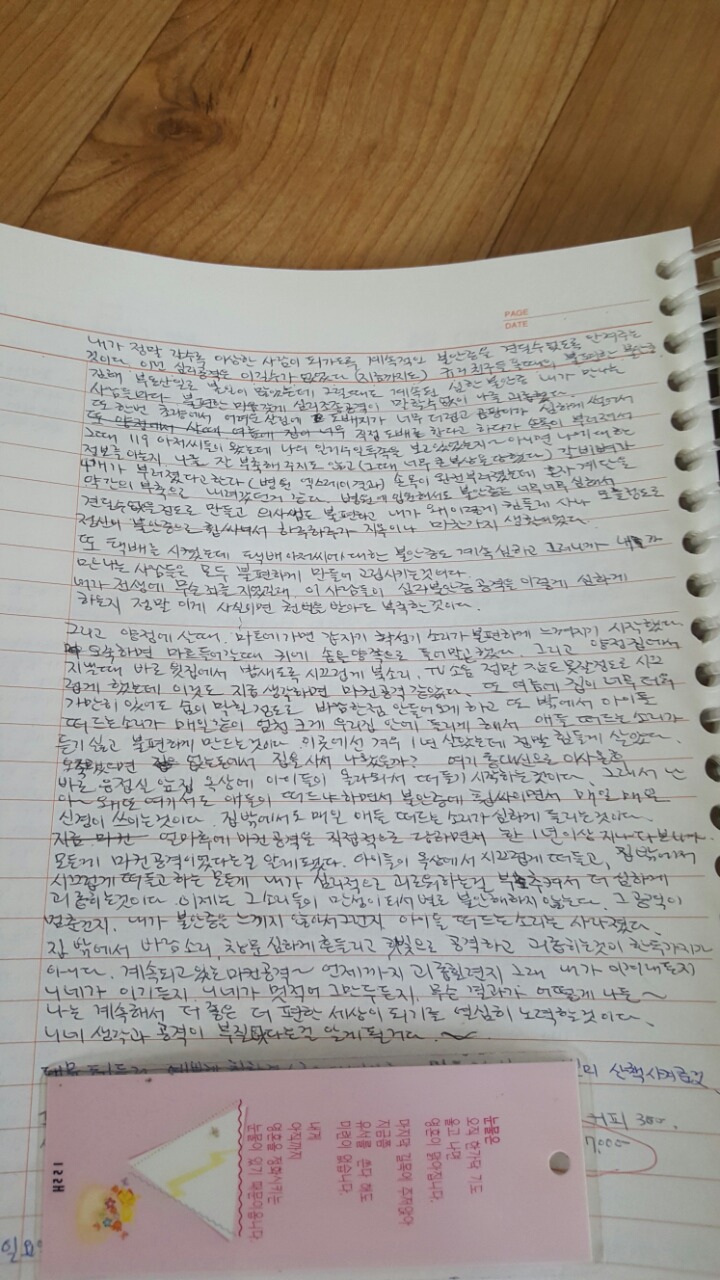 PAGE
DATE
내가 정말 갈수록 이상한 사람이 되가도록 계속적인 불안증을 견딜수 없도록 안겨주는
것이다. 이번 심리공격은 이길수가 없었다 (지금까지도)
부동산일로 내가 만나는
사람들마다 불편한 마음 심리조종공격이 말할수없이 나를 괴롭혔다.
또 한번 초량에서 살집에 도배지가 너무 더럽고 곰팡이가 심하게 썩어서
또 양정에서 살때 여름에 집이 너무 직접 도배를 한다고 하다가 손목이 부러져서
그때 119 아저씨들이 왔는데 나의 보고있었는지~ 아니면 나에 대한
정보를 아는지 나를 잘 부축해주지도 않고 (그때 너무 큰부상을 당했다) 갈비뼈가
4개가 부러졌다고한다 (병원 엑스레이결과) 손목이 완전부러졌는데 혼자 계단을
약간의 부축으로 내려갔던거 같다. 병원에 입원해서도 불안증은 너무너무 심해서
견딜수없을정도로 만들고 의사쌤도 불편하고 내가 왜 이렇게 힘들게 사나 모를정도로
정신이 불안증으로 휩싸여서 하루하루가 지옥이나 마찬가지 생활이었다.
또 택배를 시켰는데 택배아저씨에 대한 불안증도 계속 심하고 그러니까 내가
만나는 사람들은 모두 불편하게 만들어 고립시키는것이다.
내가 전생에 무슨죄를 지었길래 이 사람들이 심리불안증공격을 이렇게 심하게
하는지 정말 이게 사실이면 천벌을 받아도 부족할것이다.
그리고 양정에 살때 마트에가면 갑자기 확성기 소리가 불편하게 느껴지기 시작했다
오죽하면 마트들어갈때 귀에 솜을 양쪽으로 틀어막고했다. 그리고 양정집에서
지낼때 바로 뒷집에서 밤새도록 시끄럽게 TV소음 정말 잠도 못잘정도로 시끄
럽게 했는데 이것도 지금 생각하면 마컨공격 같았다. 또 여름에 집이 너무 더워
가만히 있어도 숨이 막힐 정도로 만들어놓게 하고 또 밖에서 아이들
떠드는소리가 매일같이 엄청 크게 우리집 안에 들리게 해서 애들 떠드는 소리가
듣기 싫고 불편하게 만드는것이다. 이곳에서 겨우 1년 살았는데 정말 힘들게 살았다.
오죽했으면 집을 사서 나왔을까? 여기 이사온후
바로 옆집 옥상에 아이들이 올라와서 떠들기 시작하는것이다. 그래서 난
아~ 왜 또 여기서도 애들이 떠드냐하면서 불안증에 휩싸이면서 매일매일
신경이 쓰이는것이다. 집밖에서도 매일 애들 떠드는 소리가 심하게 들리는것이다.
지금 마컨 얼마후에 마컨공격을 직접적으로 당하면서 한 1년이상 지나다보니까
모든게 마컨공격이었다는걸 알게됐다. 아이들이 옥상에서 시끄럽게 떠들고, 집밖에서
시끄럽게 떠들고 하는 모든게 내가 심리적으로 괴로워하는걸 부추켜서 더 심하게
괴롭히는것이다. 이제는 그소리들이 만성이 되서 별로 불안해하지 않는다. 그 공격이
멈춘건지, 내가 불안증을 느끼지 않아서그런지 아이들 떠드는소리는 사라졌다.
집 밖에서 바람소리, 창문 심하게 흔들리고 햇빛으로 공격하고 괴롭히는것이 한두가지가
아니다. 계속되고있는 마컨공격~ 언제까지 괴롭힐런지 그래 내가 이겨내든지
니네가 이기든지, 니네가 멋적어 그만두든지, 무슨 결과가 어떻게 나든~
나는 계속해서 더 좋은 더 편한 세상이 되기를 열심히 노력할것이다.
니네 생각과 공격이 부질없다는걸 알게될거다. ~
산책
커피 300.
7,000
일요
눈물은
오직 한가닥 기도
울고 나면
영혼이 맑아집니다.
마지막 길목이 주저앉아
지금쯤
유서를 쓴다 해도
미련이 없습니다.
내게
아직까지
영혼을 정화시키는
눈물이 있기 때문이옵니다.